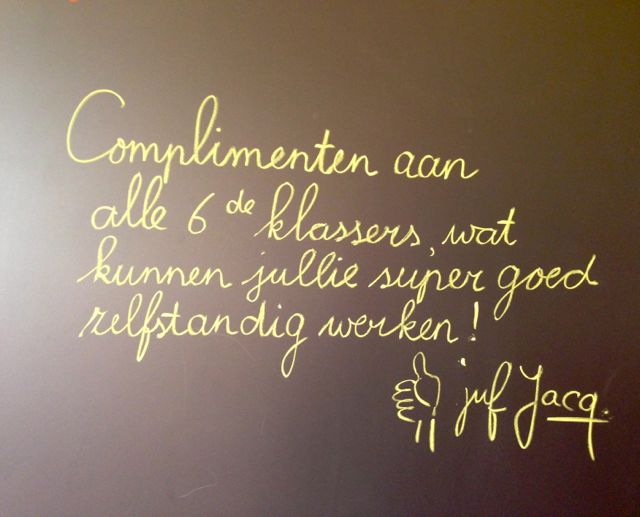 Complimenten aan
alle 6de klassers, wat
kunnen jullie super goed
zelfstandig werken!
juf Jacq.